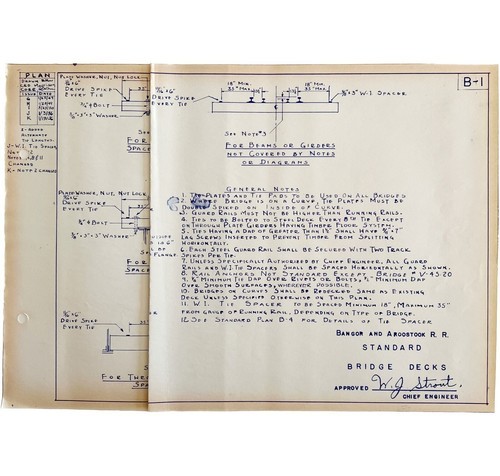 PLAN
ISSUE DATE
PLATE WASHER, NUT, NUT LOCK
DRIVE SPIKE
EVERY TIE
3/4" BOLT
WASHER
FOR
SPACE
PLATE WASHER, NUT, NUT LOCK
BOLT
WASHER
FO
SPA
DRIVE SPIKE
EVERY TIE
FOR THRO
SPA
J-W.I. TIE SPACER
CHANGED
K-NOTE 2 CHANGED
B-1
DRIVE SPIKE
EVERY TIE
18" MIN.
35" MAX.
18" MIN.
35" MAX.
W.I. SPACER
SEE NOTE #3
FOR BEAMS OR GIRDERS
NOT COVERED BY NOTES
OR DIAGRAMS
GENERAL NOTES
1. TIE PLATES AND TIE PADS TO BE USED ON ALL BRIDGES
2. WHERE BRIDGE IS ON A CURVE, TIE PLATES MUST BE
DOUBLE SPIKED ON INSIDE OF CURVE.
3. GUARD RAILS MUST NOT BE HIGHER THAN RUNNING RAILS.
4. TIES TO BE BOLTED TO STEEL DECK EVERY 8TH TIE EXCEPT
ON THROUGH PLATE GIRDERS HAVING TIMBER FLOOR SYSTEM.
5. TIES HAVING A DAP OF GREATER THAN 1 1/8" SHALL HAVE
LAG SCREWS INSERTED TO PREVENT TIMBER FROM SPLITTING
HORIZONTALLY.
6. EACH STEEL GUARD RAIL SHALL BE SECURED WITH TWO TRACK
SPIKES PER TIE.
7. UNLESS SPECIFICALLY AUTHORIZED BY CHIEF ENGINEER, ALL GUARD
RAILS AND W.I. TIE SPACERS SHALL BE SPACED HORIZONTALLY AS SHOWN.
8. RAIL ANCHORS NOT STANDARD EXCEPT BRIDGE
9. MINIMUM DAP OVER RIVETS OR BOLTS, MINIMUM DAP
OVER SMOOTH SURFACES, WHEREVER POSSIBLE.
10. BRIDGES ON CURVES SHALL BE REDECKED SAME AS EXISTING
DECK UNLESS SPECIFIED OTHERWISE ON THIS PLAN.
11. W.I. TIE SPACER TO BE SPACED MINIMUM 18", MAXIMUM 35"
FROM GAUGE OF RUNNING RAIL, DEPENDING ON TYPE OF BRIDGE.
12. SEE STANDARD PLAN B-4 FOR DETAILS OF TIE SPACER
BANGOR AND AROOSTOOK R. R.
STANDARD
BRIDGE DECKS
APPROVED W. J. Strout.
CHIEF ENGINEER